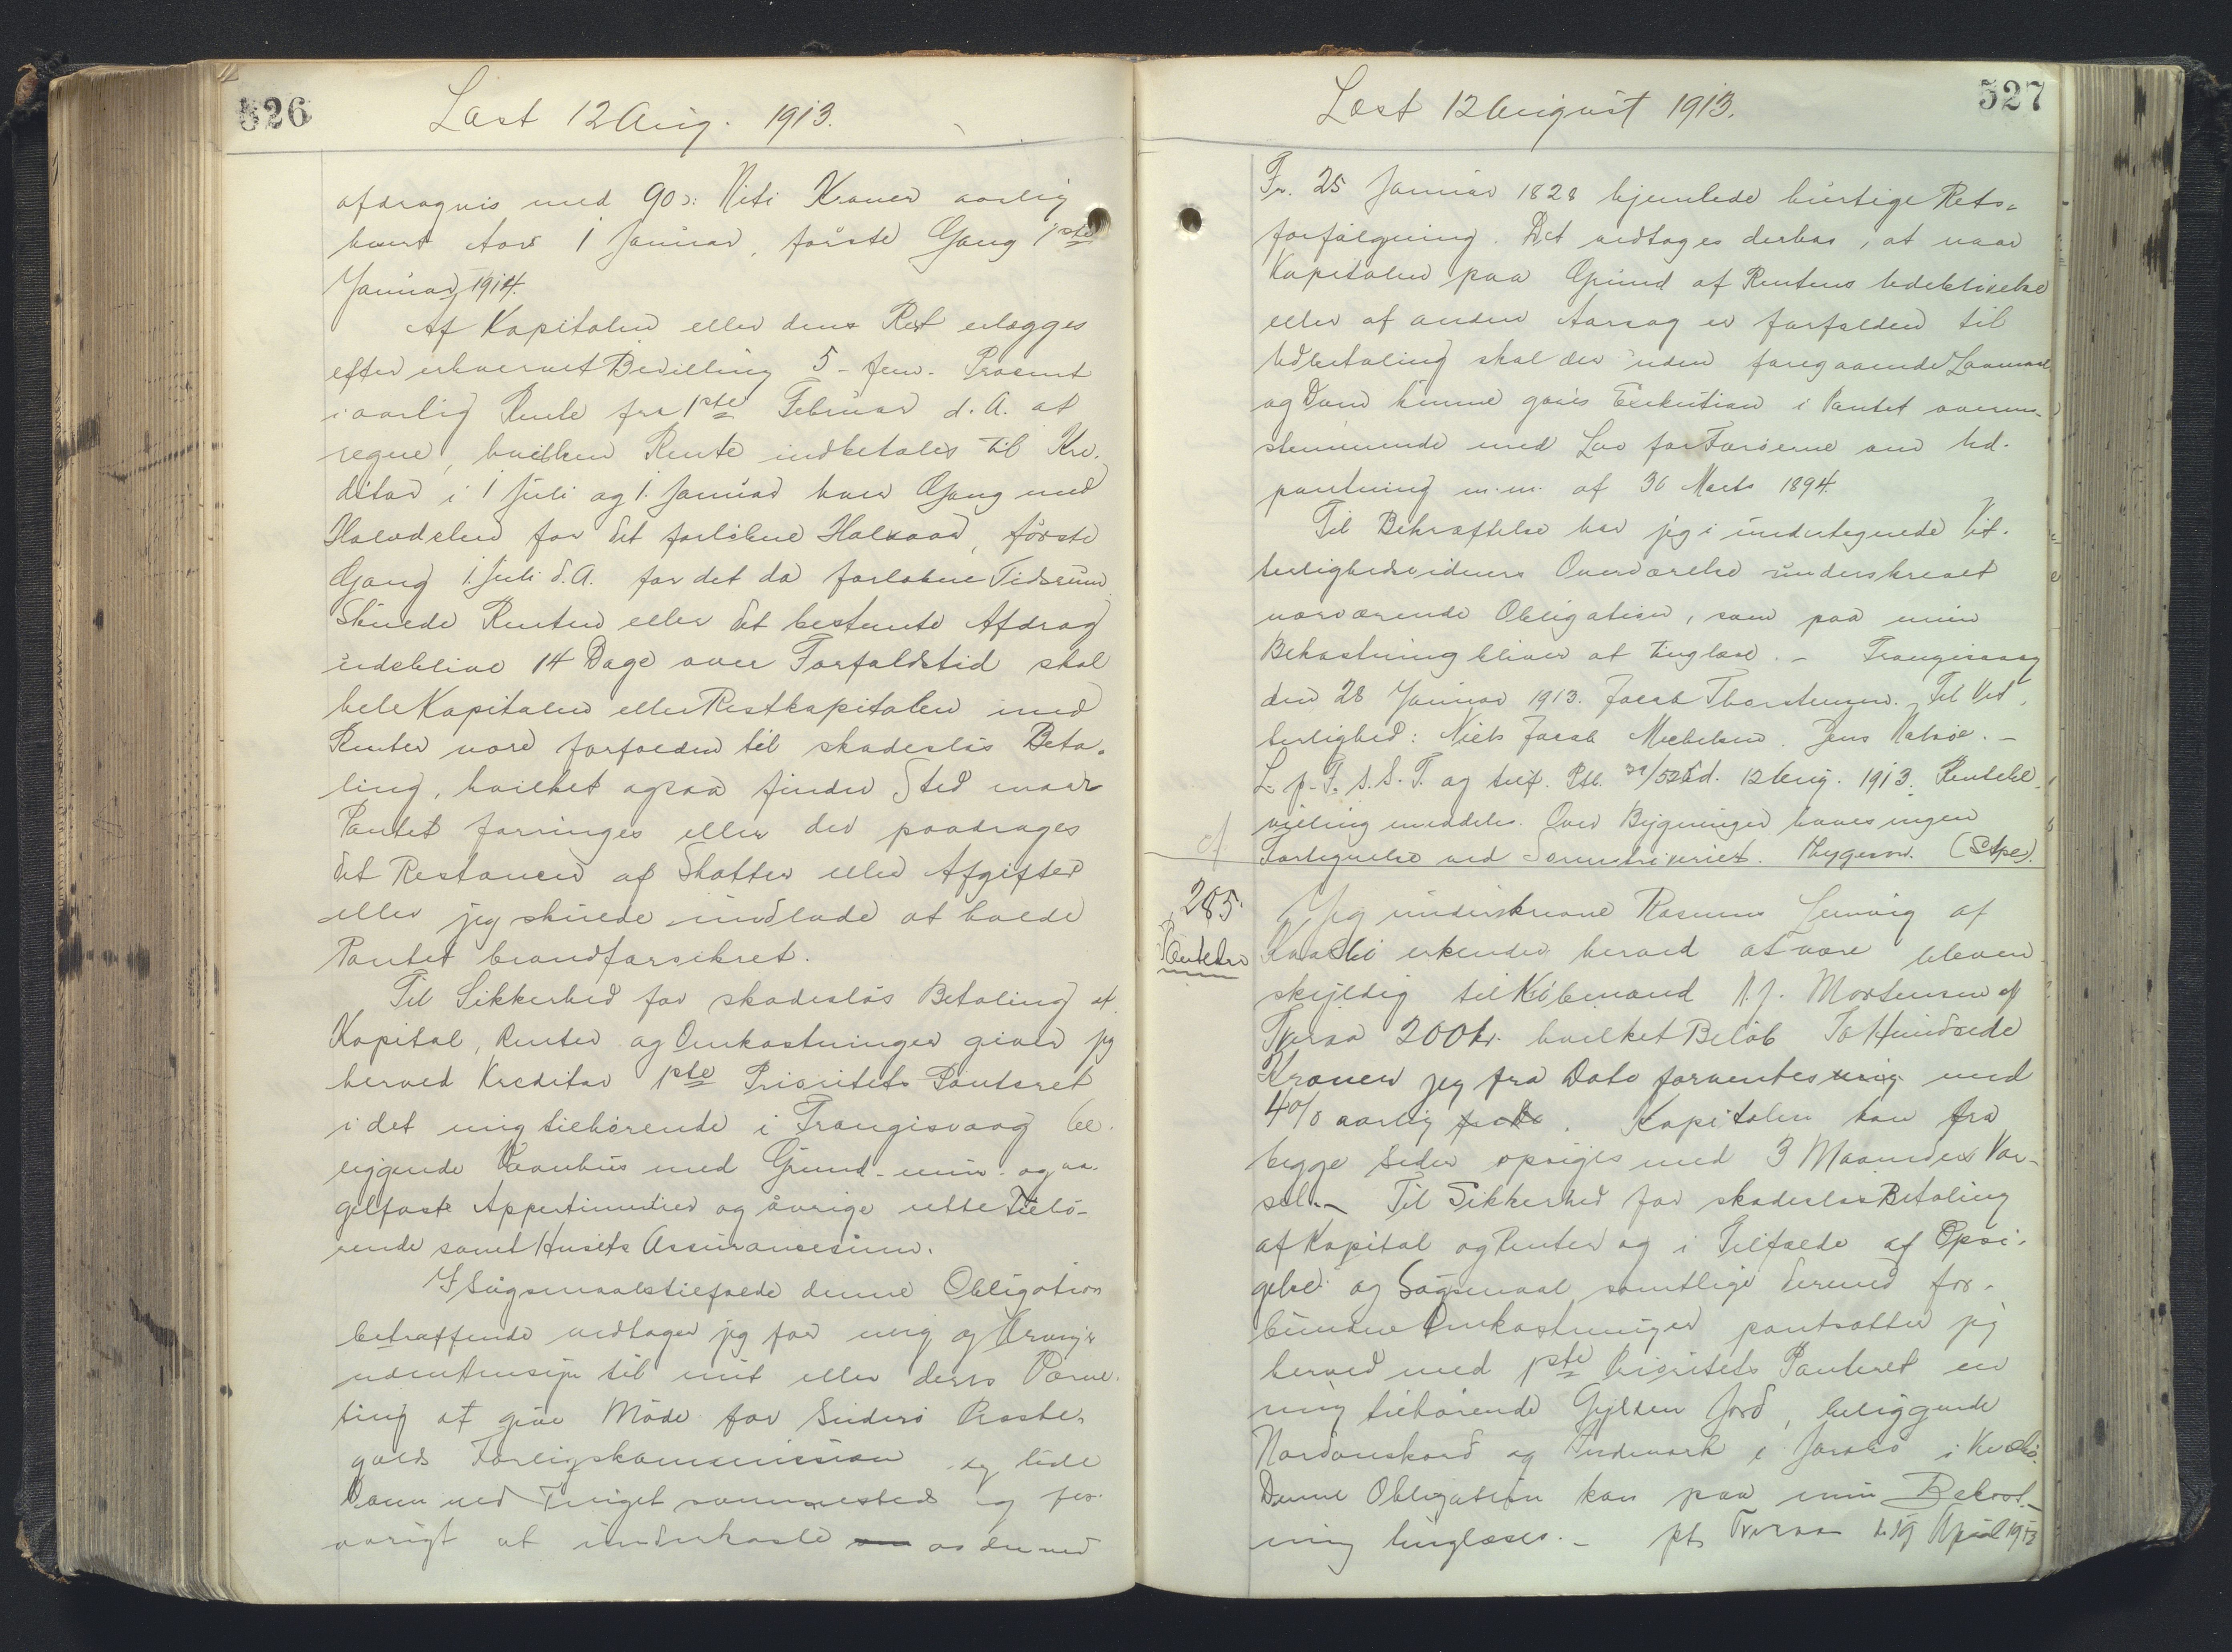 526
Læst 12 Aug. 1913.
afdragvis med 90 ɔ: Niti Kroner aarlig
hvert Aars 1 Januar, første Gang 1ste
Januar 1914.
Af Kapitalen eller dens Rest erlægges
efter erhvervet Bevilling 5 - fem - Procent
i aarlig Rente fra 1ste Februar d. A. at
regne, hvilken Rente indbetales til Kre-
ditor i 1 Juli og 1. Januar hver Gang med
Halvdelen for det forløbne Halvaar, første
Gang 1. Juli d. A. for det da forløbne Tidsrum.
Skulde Renten eller det bestemte Afdrag
udeblive 14 Dage over Forfaldstid skal
hele Kapitalen eller Restkapitalen med
Renter være forfalden til skadesløs Beta-
ling, hvilket ogsaa finder Sted naar
Pantet forringes eller der paadrages
det Restancer af Skatter eller Afgifter
eller jeg skulde undlade at holde
Pantet brandforsikret.
Til Sikkerhed for skadesløs Betaling af
Kapital, Renter og Omkostninger giver jeg
herved Kreditor 1ste Prioritets Panteret
i det mig tilhørende i Trangisvaag be-
liggende Vaanhus med Grund- mur- og na-
gelfaste Appertinentier og øvrige rette Tilhø-
rende samt Husets Assurancesum.
I Søgsmaalstilfælde denne Obligation
betræffende vedtager jeg for mig og Arvinger
uden Hensyn til mit eller deres Værne-
ting at give Møde for Suderø Præste-
gælds Forligskommission og lide
Dom ved Tinget sammesteds og for-
øvrigt at underkaste os den ved
Læst 12 August 1913.
527
Fr. 25 Januar 1828 hjemlede hurtige Rets-
forfølgning. Det vedtages derhos, at naar
Kapitalen paa Grund af Rentens Udeblivelse
eller af anden Aarsag er forfalden til
Udbetaling skal der uden foregaaende Lovmaal
og Dom kunne gøres Exekution i Pantet overens-
stemmende med Lov for Færøerne om Ud-
pantning m.m. af 30 Marts 1894.
Til Bekræftelse har jeg i undertegnede Vit-
terlighedsvidners Overværelse underskrevet
nærværende Obligation, som paa min
Bekostning bliver at tinglæse. - Trangisvaag
den 28 Januar 1913. Jacob Thorstensen. Til Vit-
terlighed: Niels Jacob Mikkelsen. Jens Kalsøe. -
L. p. T. s. S. T. og tilf. Ptb. d. 12 Aug. 1913. Rentebe-
villing meddeles. Over Bygninger haves ingen
Fortegnelse ved Sorenskriveriet. Thygesen. (Stpl).
285.
Pantebr
Jeg underskrevne Rasmus Lervig af
Kvalbø erkender herved at være bleven
skyldig til Købmand N. J. Mortensen af
Tveraa 200 kr. hvilket Beløb To Hundrede
Kroner jeg fra Dato forrentes mig med
4% aarlig fra Do. Kapitalen kan fra
begge Sider opsiges med 3 Maaneders Var-
sel. - Til Sikkerhed for skadesløs Betaling
af Kapital og Renter og i Tilfælde af Opsi-
gelse og Søgsmaal samtlige dermed for-
bundne Omkostninger pantsætter jeg
herved med 1ste Prioritets Panteret en
mig tilhørende Gylden Jord, beliggende
Nordanskord og i Kvalbø.
Denne Obligation kan paa min Bekost-
ning tinglæses. - pt. Tveraa d. 19 April 1913